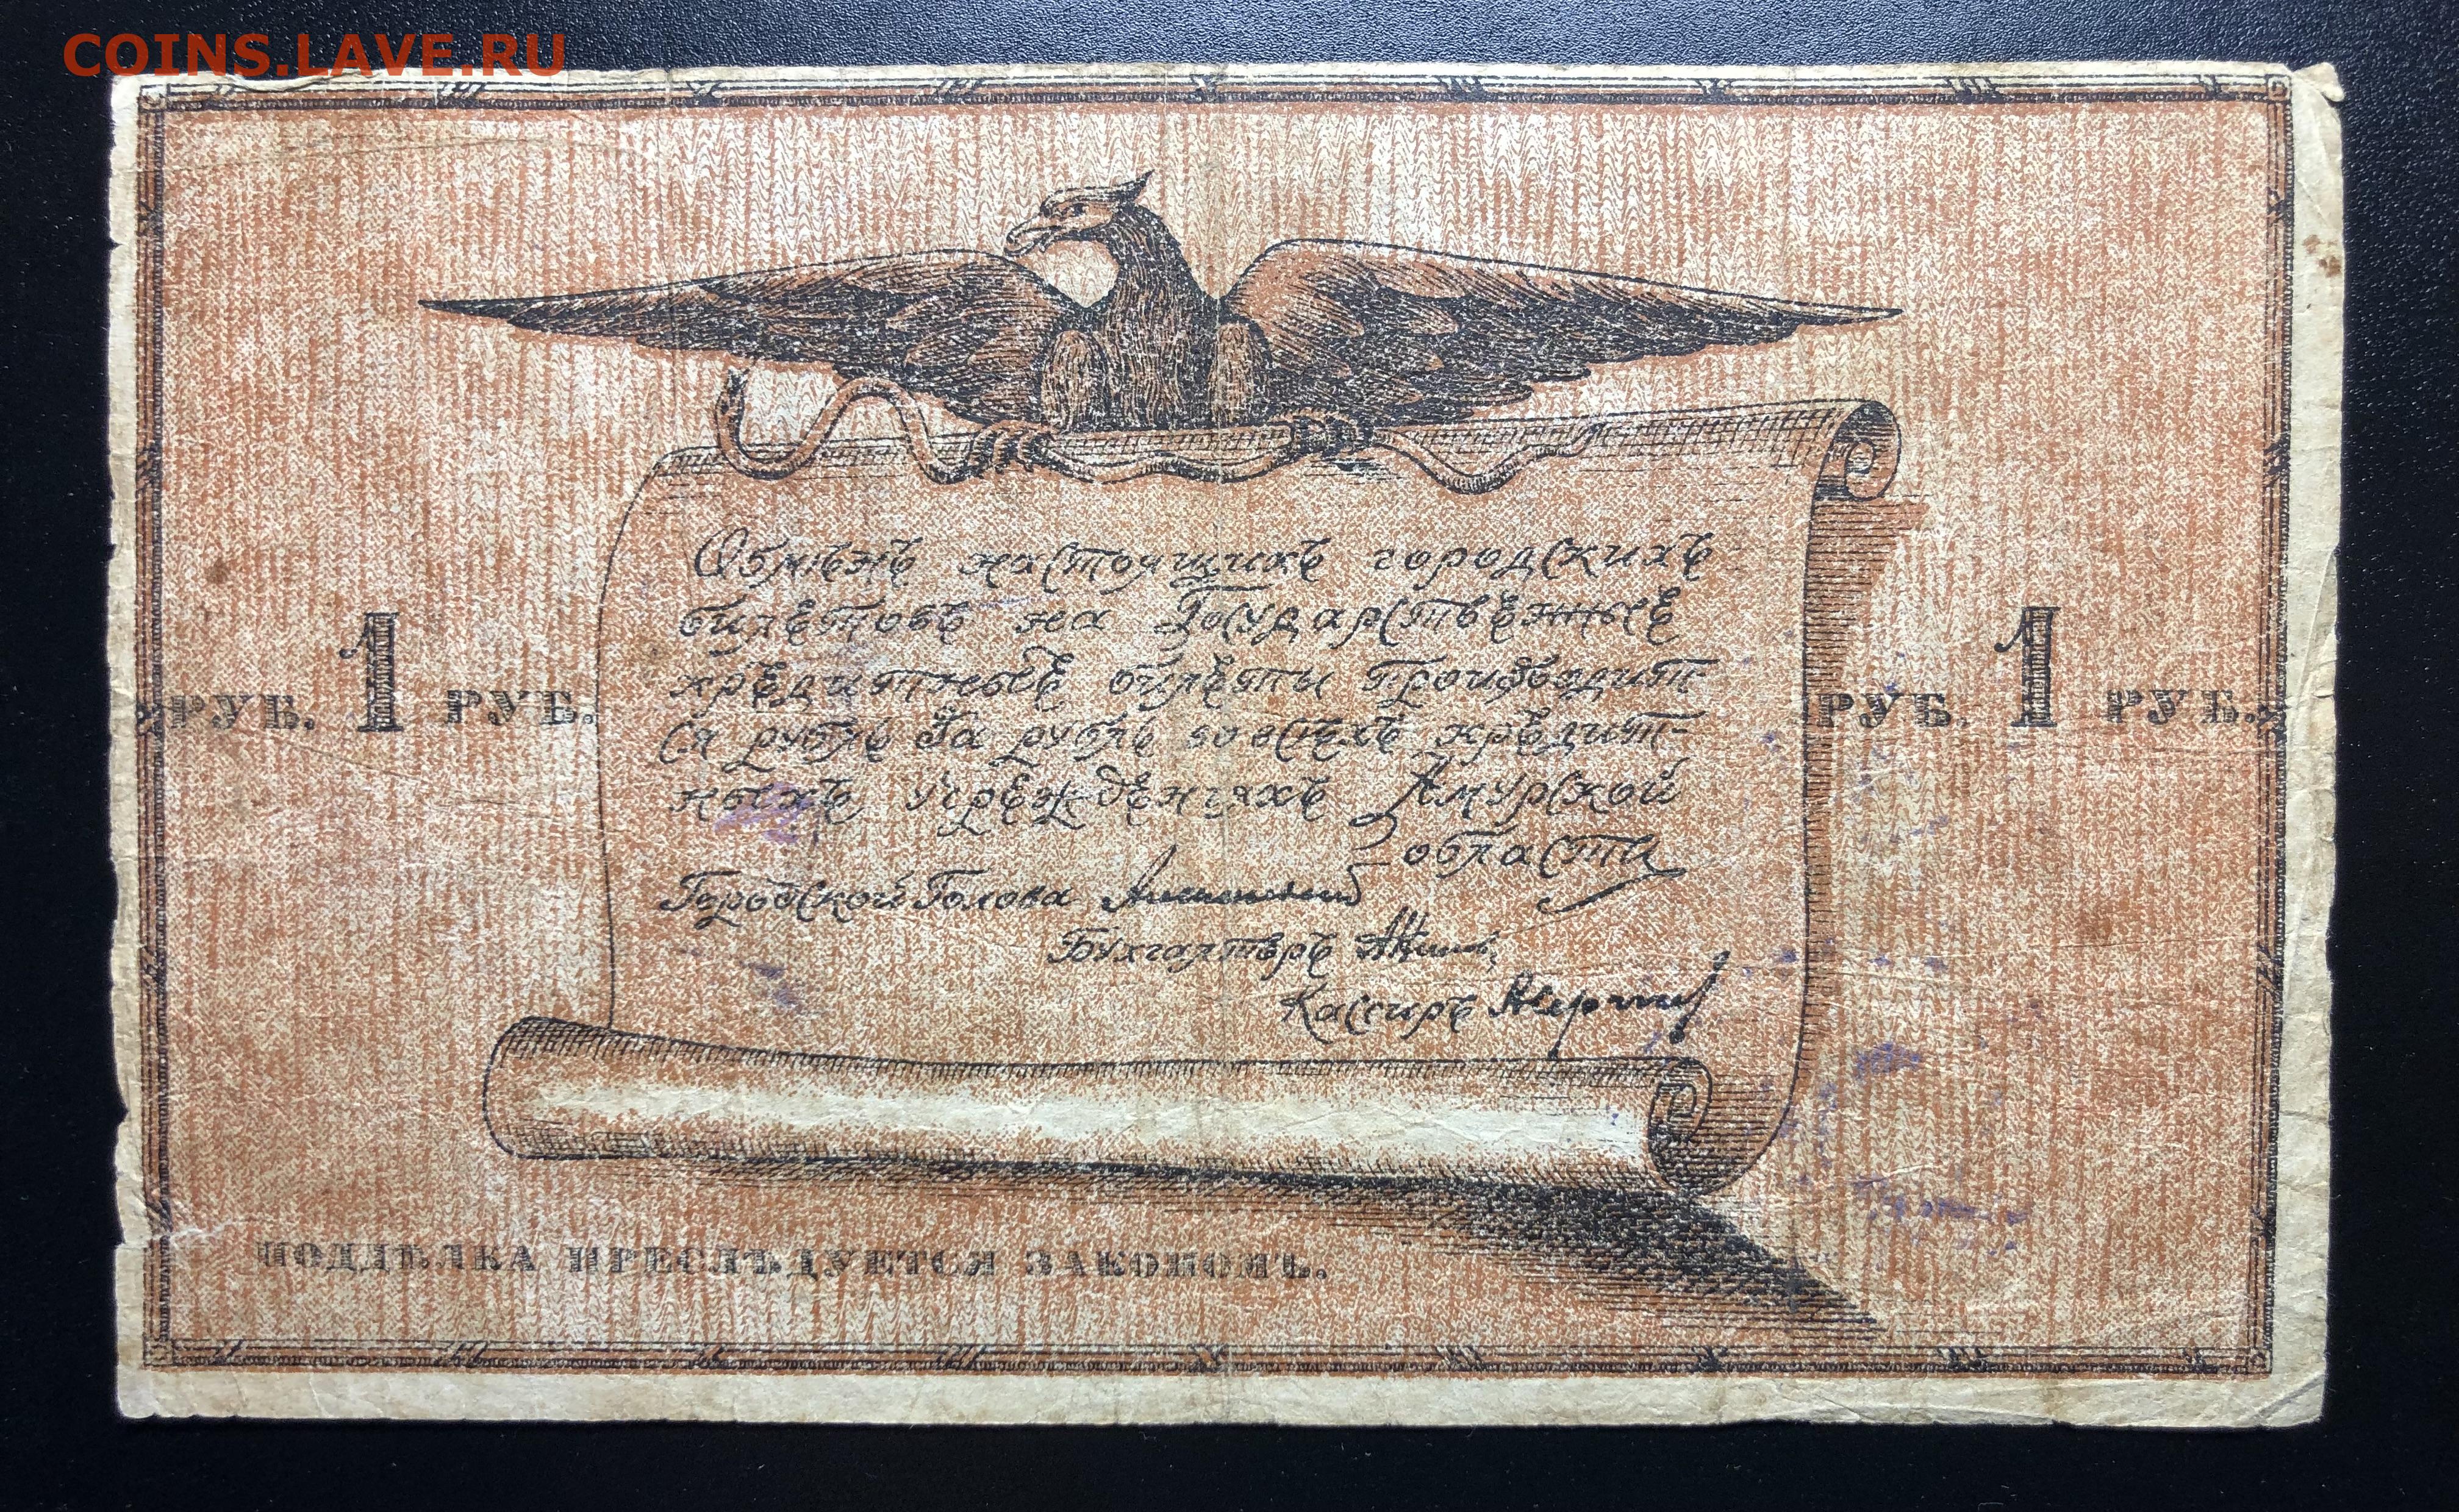 COINS.LAVE.RU
Обмѣнъ настоящихъ городскихъ
билетовъ на Государственные
кредитные билеты производит-
ся рубль за рубль во всѣхъ кредит-
ныхъ учрежденіяхъ Амурской
области
РУБ. 1 РУБ.
РУБ. 1 РУБ.
Городской Голова
Бухгалтеръ
Кассиръ
ПОДДѢЛКА ПРЕСЛѢДУЕТСЯ ЗАКОНОМЪ.